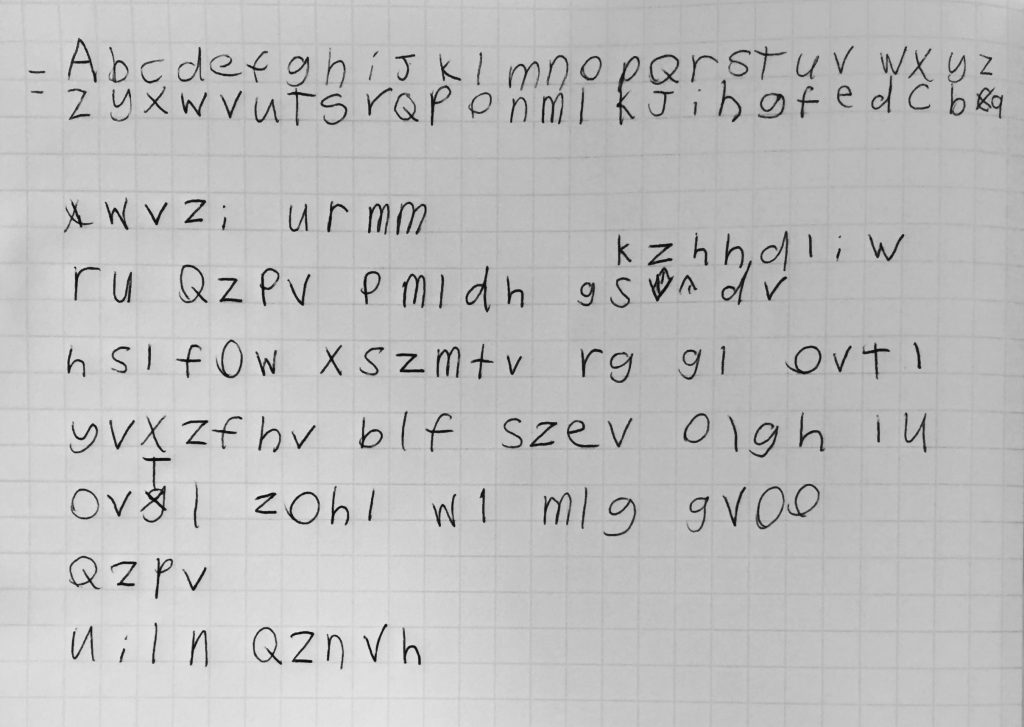 = A b c d e f g h i J k l m n o p Q r s t u v w x y z
z y x w v u t s r Q p o n m l k J i h g f e d c b a
wvzi urmm
kzhhdliw
ru Qzpv pmldh gs ^ dv
hslfow xszmtv rg gl ovtl
yvxzfhv blf szev olgh lu
ovtl zohl wl mlg gvoo
Qzpv
uiln Qznvh